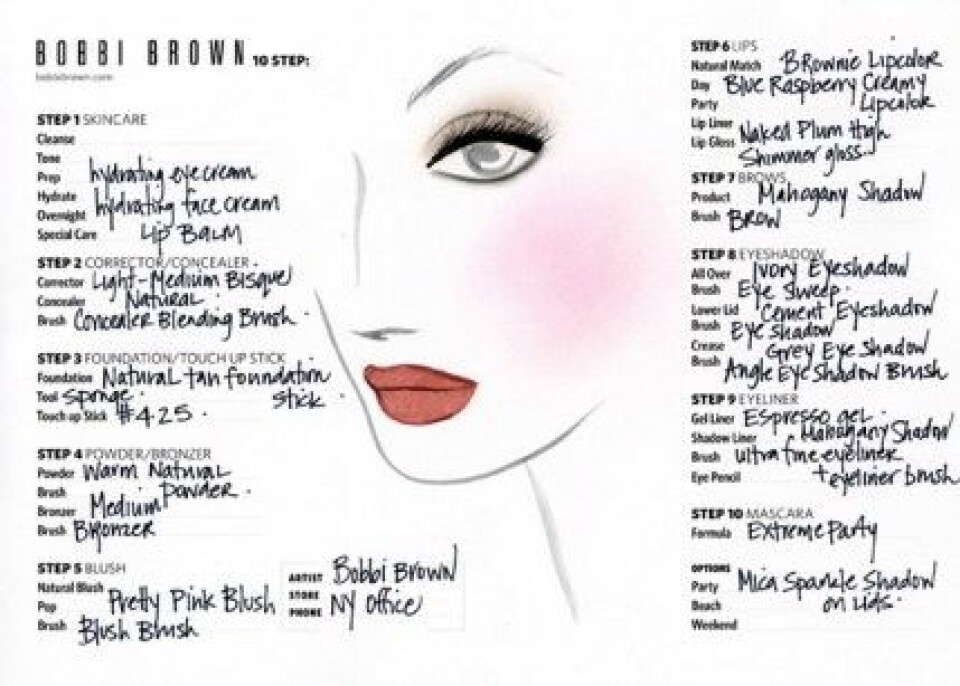 BOBBI BROWN 10 STEP:
bobbibrown.com
STEP 1 SKINCARE
Cleanse
Tone
Prep hydrating eye cream
Hydrate
Overnight hydrating face cream
Special Care Lip Balm
STEP 2 CORRECTOR/CONCEALER
Corrector Light-Medium Bisque
Concealer Natural
Brush Concealer Blending Brush
STEP 3 FOUNDATION/TOUCH UP STICK
Foundation Natural tan foundation
Tool Sponge. stick
Touch up Stick #4.25
STEP 4 POWDER/BRONZER
Powder Warm Natural
Brush Powder
Bronzer Medium
Brush Bronzer
STEP 5 BLUSH
Natural Blush
Pop Pretty Pink Blush
Brush Blush Brush
ARTIST Bobbi Brown
STORE NY Office
PHONE
STEP 6 LIPS
Natural Match Brownie Lipcolor
Day Blue Raspberry Creamy
Party Lipcolor
Lip Liner
Lip Gloss Naked Plum High
Shimmer gloss..
STEP 7 BROWS
Product Mahogany Shadow
Brush Brow
STEP 8 EYESHADOW
All Over Ivory Eyeshadow
Brush Eye Sweep.
Lower Lid Cement Eyeshadow
Brush Eye shadow
Crease Grey Eye Shadow
Brush Angle Eye Shadow Brush
STEP 9 EYELINER
Gel Liner Espresso gel.
Shadow Liner Mahogany Shadow
Brush ultra fine eyeliner
Eye Pencil + eyeliner brush
STEP 10 MASCARA
Formula Extreme Party
OPTIONS
Party Mica Sparkle Shadow
Beach on Lids.
Weekend